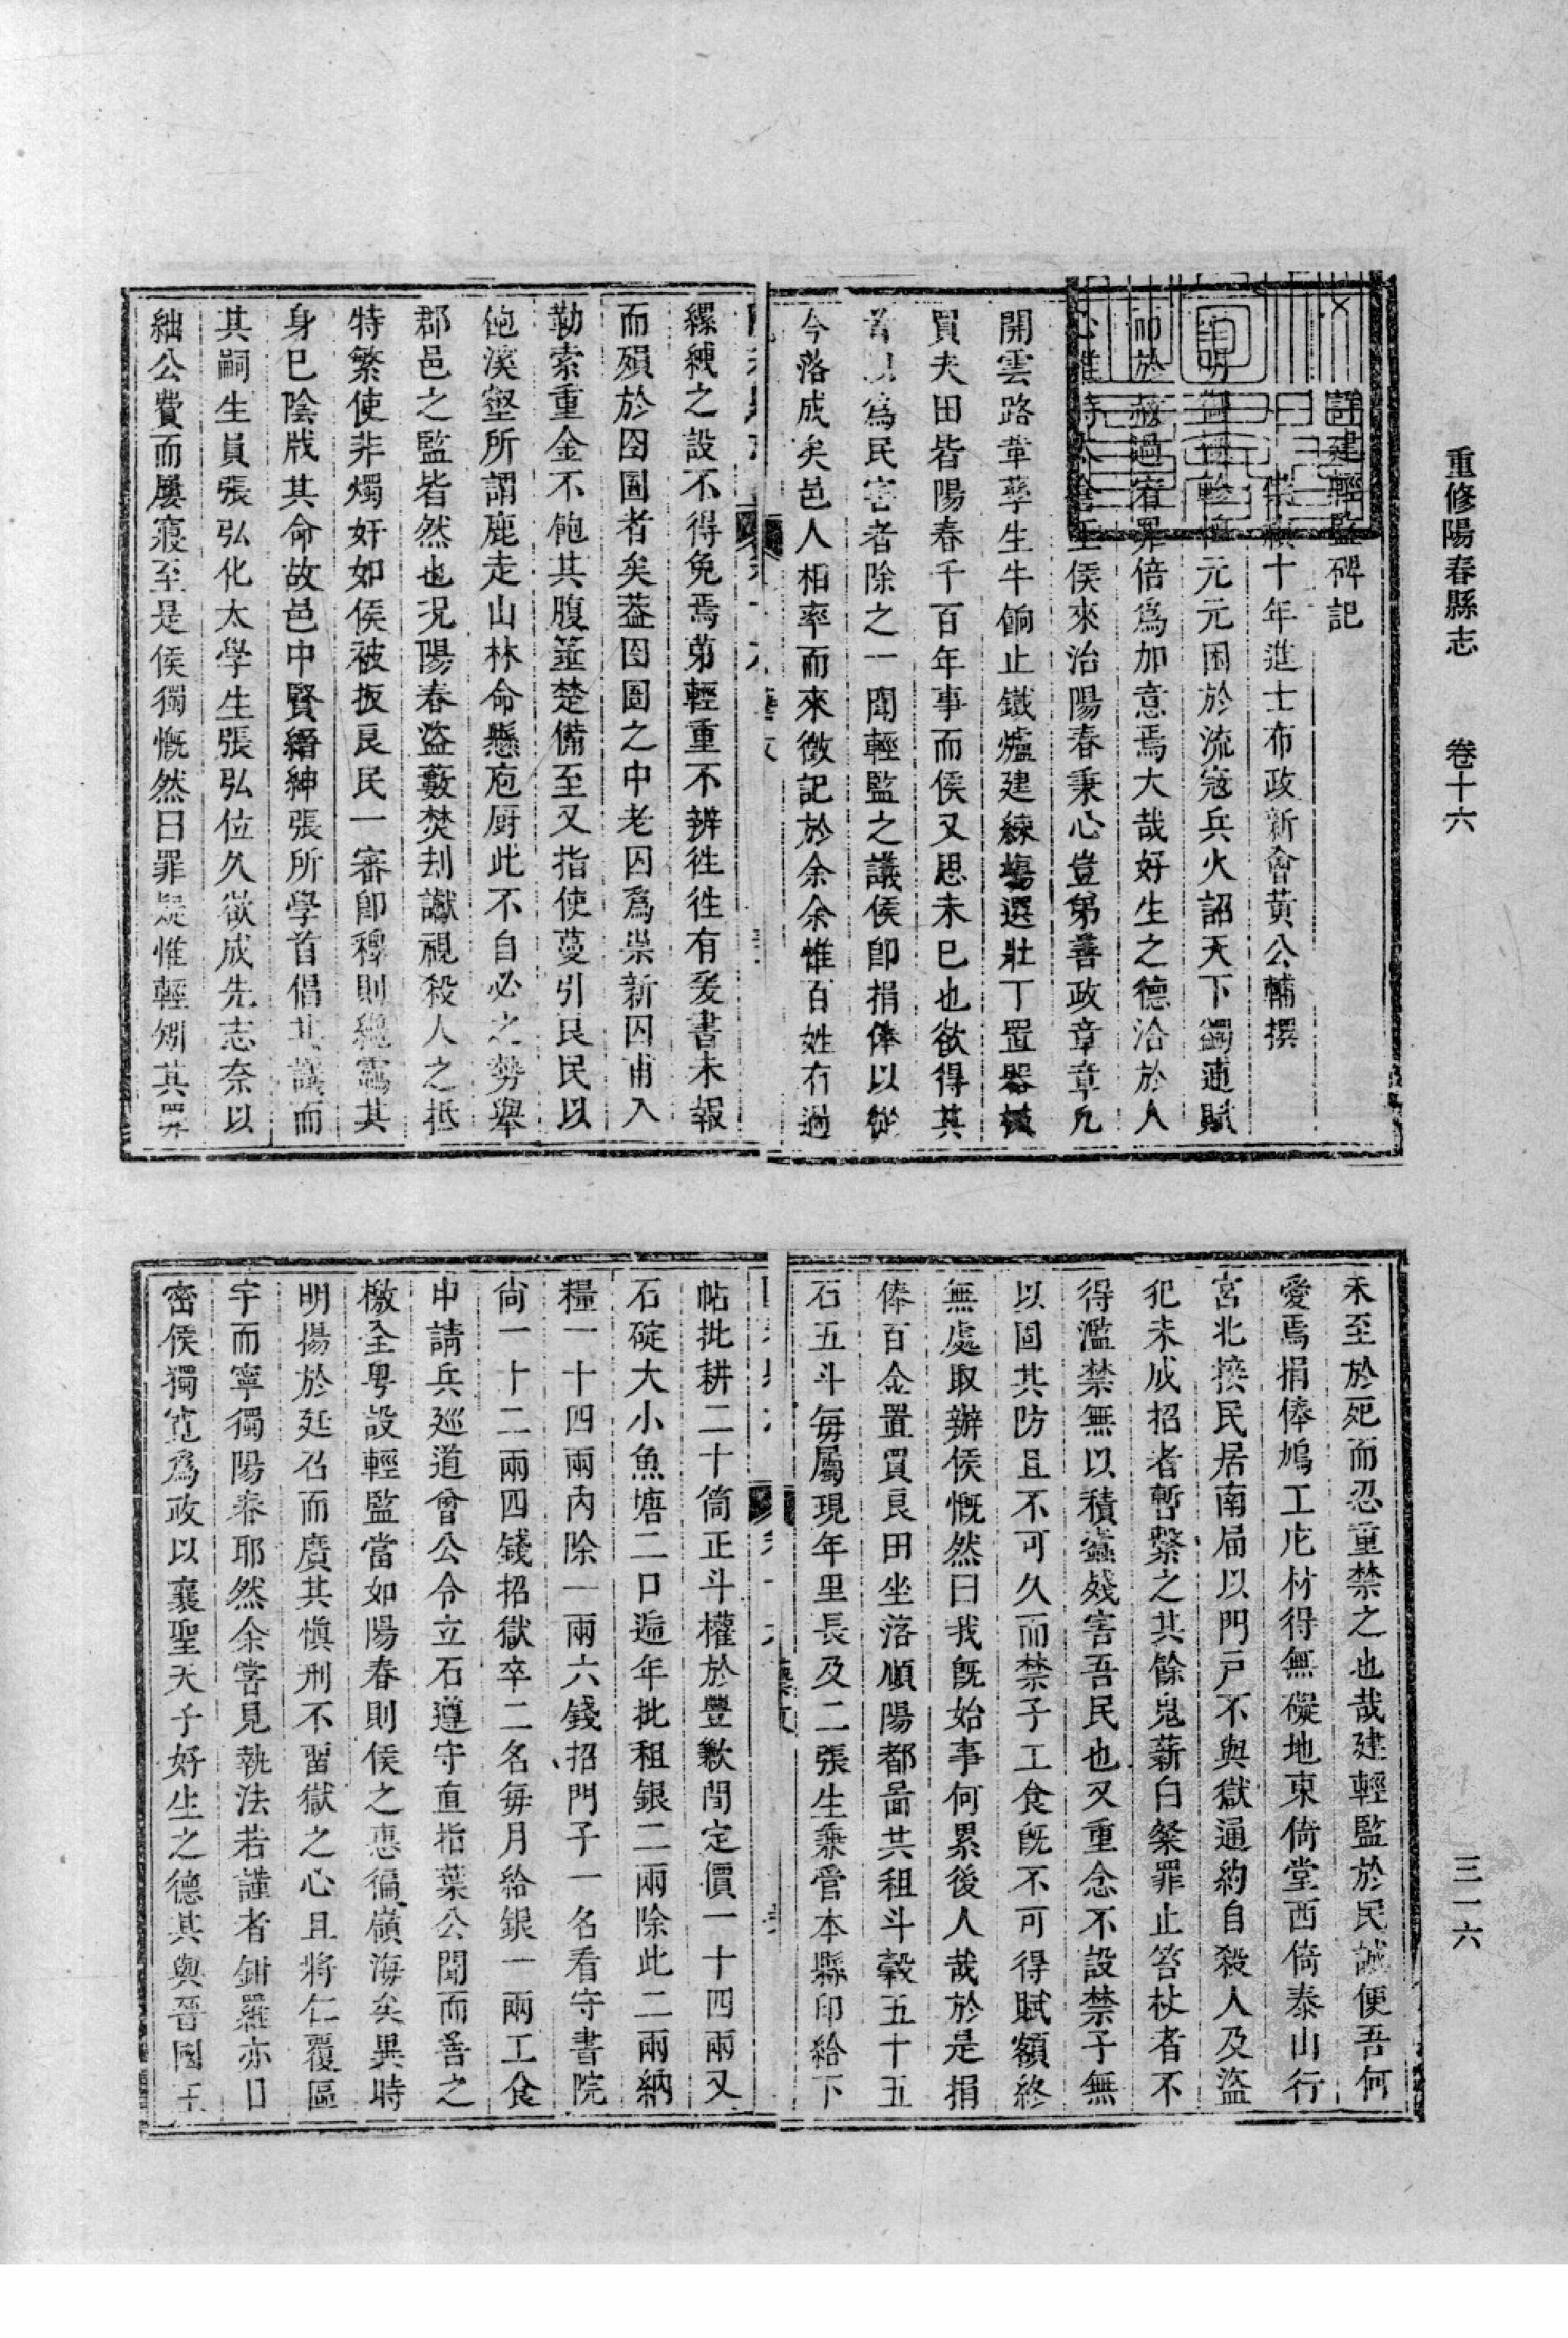 重修陽春縣志　卷十六
三一六
建輕監碑記
十年進士布政新會黃公輔撰
元元困於流寇兵火詔天下蠲逋賦
而於赦過宥罪倍爲加意焉大哉好生之德洽於人
侯來治陽春秉心豈弟善政章章凡
開雲路葺孳生牛餉止鐵爐建練塲選壯丁置器械
買夫田皆陽春千百年事而侯又思未已也欲得其
爲民害者除之一聞輕監之議侯卽捐俸以從
今落成矣邑人相率而來徵記於余余惟百姓有過
縲絏之設不得免焉苐輕重不辨徃徃有爰書未報
而殞於囹圄者矣葢囹圄之中老囚爲祟新囚甫入
勒索重金不飽其腹箠楚備至又指使蔓引民民以
飽溪壑所謂鹿走山林命懸庖厨此不自必之勢舉
郡邑之監皆然也况陽春盜藪焚刦讞視殺人之抵
特繁使非燭奸如侯被扳良民一審卽釋則寃其
身已陰戕其命故邑中賢縉紳張所學首倡其議而
其嗣生員張弘化太學生張弘位久欲成先志奈以
絀公費而屢寢至是侯獨慨然曰罪疑惟輕矧其罪
未至於死而忍重禁之也哉建輕監於民誠便吾何
愛焉捐俸鳩工庀材得無礙地東倚堂西倚泰山行
宮北接民居南扃以門戸不與獄通約自殺人及盜
犯未成招者暫繫之其餘鬼薪白粲罪止笞杖者不
得濫禁無以積蠧殘害吾民也又重念不設禁子無
以固其防且不可久而禁子工食旣不可得賦額終
無處取辦侯慨然曰我旣始事何累後人哉於是捐
俸百金置買良田坐落順陽都畱共租斗穀五十五
石五斗每屬現年里長及二張生兼管本縣印給下
帖批耕二十筒正斗權於豐歉間定價一十四兩又
石碇大小魚塘二口遞年批租銀二兩除此二兩納
糧一十四兩內除一兩六錢招門子一名看守書院
尙一十二兩四錢招獄卒二名每月給銀一兩工食
申請兵廵道曾公令立石遵守直指葉公聞而善之
檄全粤設輕監當如陽春則侯之惠徧嶺海矣異時
明揚於廷召而廣其愼刑不畱獄之心且將仁覆區
宇而寧獨陽春耶然余嘗見執法若謹者鉗羅亦日
密侯獨寬爲政以襄聖天子好生之德其與晉國王